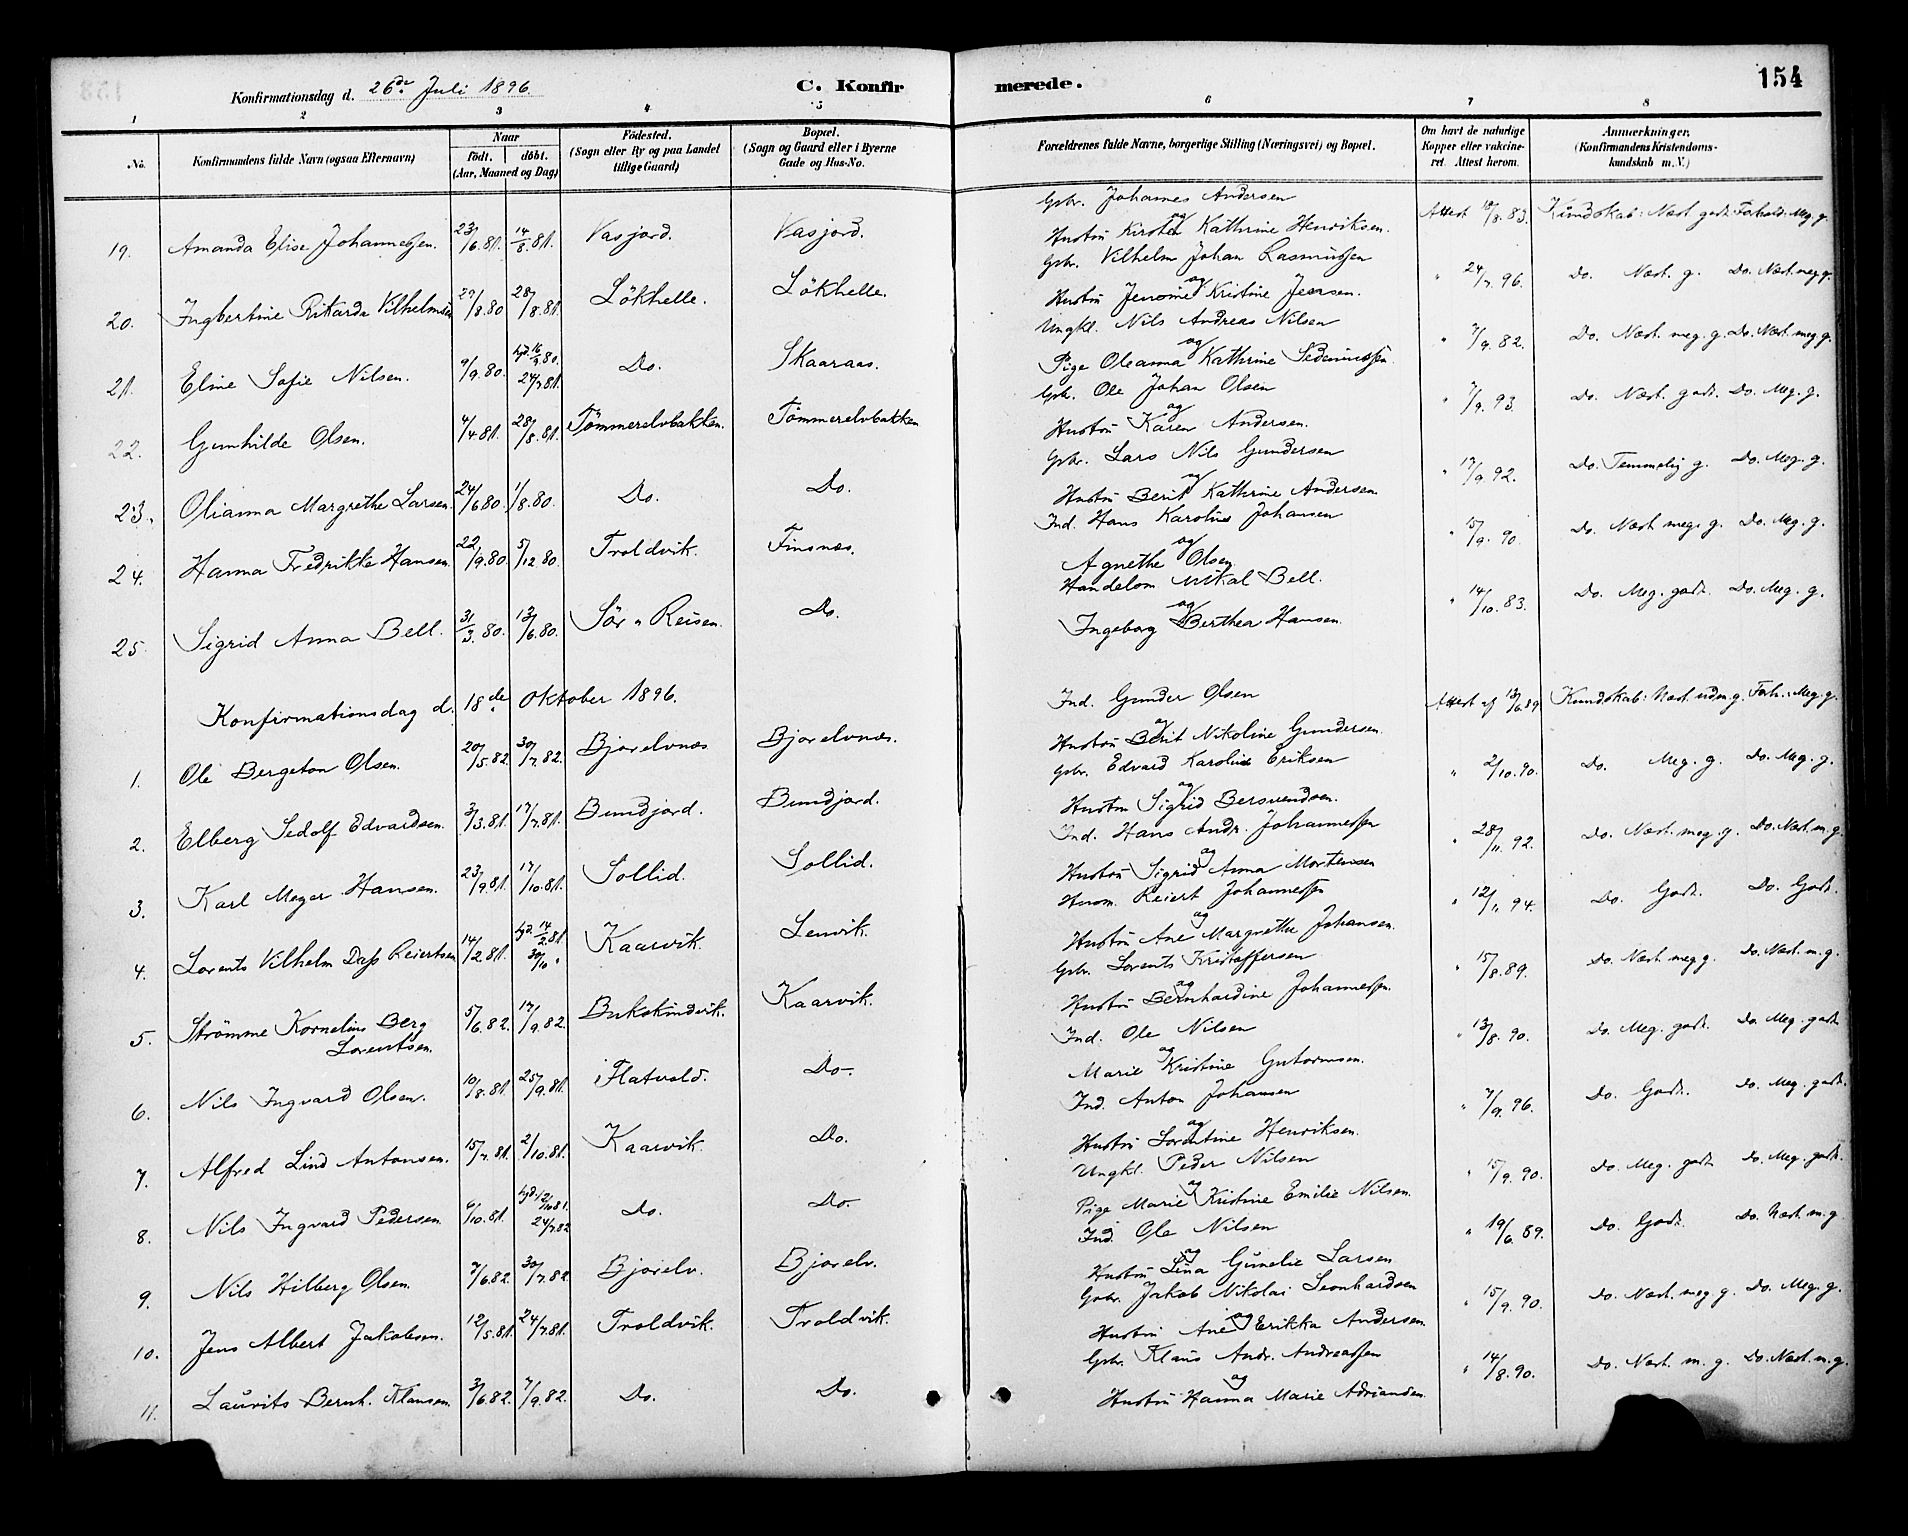 Konfirmationsdag d. 26de Juli 1896. C. Konfirmerede. 154
1 2 3 4 5 6 7 8
No.
Konfirmandens fulde Navn (ogsaa Efternavn)
Naar
født. døbt.
(Aar, Maaned og Dag)
Fødested.
(Sogn eller By og paa Landet
tillige Gaard)
Bopæl.
(Sogn og Gaard eller i Byerne
Gade og Hus-No.
Forældrenes fulde Navne, borgerlige Stilling (Næringsvei) og Bopæl.
Om havt de naturlige
Kopper eller vakcine-
ret. Attest herom.
Anmærkninger.
(Konfirmandens Kristendoms-
kundskab m. V.)
Gbr. Johannes Andersen
19. Amanda Elise Johannessen. 23/6.81. 14/8.81. Vasjord. Vasjord. og Hustru Kirsten Kathrine Henriksen. Attest 18/8.83. Kundskab: Næst. godt. Forhold: Meg. g.
Gbr. Vilhelm Johan Rasmussen
20. Ingbertine Rikarda Vilhelmsen 29/8.80 28/8.81. Løkhelle. Løkhelle. og Hustru Jenome Kristine Jensen. " 24/7.96. Do. Næst. g. Do. Næst. meg. g.
Ungkl. Nils Andreas Nilsen
21. Eline Sofie Nilsen. 9/9.80. hjd. 16/9.80. 24/7.81. Do. Skaaraas. og Pige Oleanna Kathrine " 7/9.82. Do. Næst. meg. g. Do. Næst. meg. g.
Gbr. Ole Johan Olsen
22. Gunhilde Olsen. 4/4.81. 28/8.81. Tømmerelvbakken. Tømmerelvbakken og Hustru Karen Andersen. " 7/9.93. Do. Næst. godt. Do. Meg. g.
Gbr. Lars Nils Gundersen
23. Olianna Margrethe Larsen. 24/6.80. 1/8.80. Do. Do. og Hustru Berit Kathrine Andersen. " 17/9.92. Do. Temmelig g. Do. Meg. g.
Ind. Hans Karolius Johansen
24. Hanna Fredrikke Hansen. 22/9.80. 5/12.80. Troldvik. Finsnæs. og Agnethe Olsen. " 15/9.90. Do. Næst meg. g. Do. Meg. g.
Handelsm. Mikal Bell.
25. Sigrid Anna Bell. 31/3.80. 13/6.80. Sør-Reisen. Do. og Ingeborg Berthea Hansen. " 14/10.83. Do. Meg. godt. Do. Meg. g.
Konfirmationsdag d. 18de Oktober 1896.
Ind. Gunder Olsen
1. Ole Bergeton Olsen. 20/5.82. 30/7.82. Bjorelvnæs Bjorelvnæs. og Hustru Berit Nikoline Gundersen. Attest af 13/6.89. Kundskab: Næst. uden g. Forh.: Meg. g.
Gbr. Edvard Karolius Eriksen
2. Elberg Sedolf Edvardsen. 3/3.81. 17/7.81. Bundjord. Bundjord. og Hustru Sigrid Bersvendsen. " 2/10.90. Do. Meg. g. Do. Meg. g.
Ind. Hans Andr. Johannessen
3. Karl Meyer Hansen. 23/9.81. 17/10.81. Sollid. Sollid. og Hustru Sigrid Anna Mortensen " 28/11.92. Do. Næst. meg. g. Do. Næst. m. g.
Husm. Reiert Johannessen
4. Lorents Vilhelm Dass Reiertsen 14/2.81. hjd. 14/2.81. 30/10 " Kaarvik. Lenvik. og Hustru Ane Margrethe Johansen. " 12/11.94. Do. Godt. Do. Godt.
Gbr. Lorents Kristoffersen
5. Strømme Kornelius Berg Lorentsen. 5/6.82. 17/9.82. Bukskindvik. Kaarvik. og Hustru Bernhardine Johannessen. " 15/8.89. Do. Næst. meg g. Do. Næst. m. g.
Ind. Ole Nilsen
6. Nils Ingvard Olsen. 10/8.81. 25/9.81. Flatvold. Do. og Marie Kristine Gutormsen. " 13/8.90. Do. Meg. godt. Do. Meg. godt
Ind. Anton Johansen
7. Alfred Lind Antonsen. 15/7.81. 2/10.81. Kaarvik. Do. og Hustru Lorentine Henriksen. " 7/9.96. Do. Godt. Do. Meg. godt.
Ungkl. Peder Nilsen
8. Nils Ingvard Pedersen 6/10.81. hjd. 12/10 81. 24/7.82 Do. Do. og Pige Marie Kristine Emilie Nilsen. " 15/9.90. Do. Meg. godt Do. Meg. godt.
Ind. Ole Nilsen
9. Nils Hilberg Olsen. 7/6.82. 30/7.82. Bjorelv. Bjorelv. og Hustru Lina Gunelie Larsen " 19/6.89. Do. Godt. Do. Næst. m. g.
Gbr. Jakob Nikolai Leonhardsen
10. Jens Albert Jakobsen. 12/5.81. 24/7.81. Troldvik. Troldvik. og Hustru Ane Erikka Andersen. " 15/9.90. Do. Næst. meg. g. Do. Meg. g.
Gbr. Klaus Andr. Andreassen
11. Laurits Bernh. Klausen. 3/6.82. 7/9.82. Do. Do. og Hustru Hanna Marie Adriansen. " 14/8.90. Do. Næst. m. g. Do. Næst. m. g.